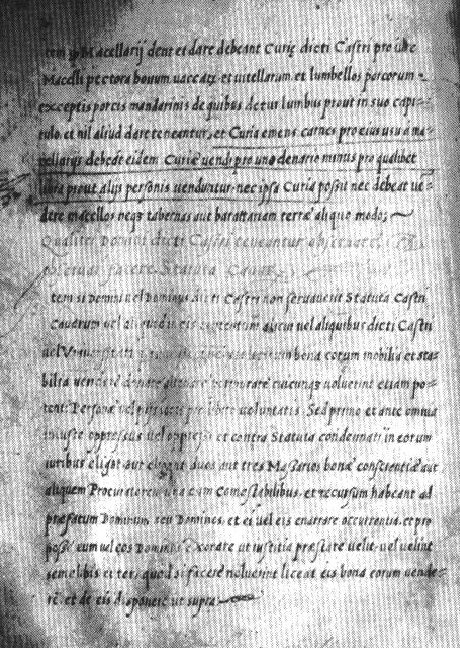 tem q Macellarij dent et dare debeant Curię dicti Castri pro
Macelli pectora bouum uaccarᶻ et uitellarum et lumbellos porcorum
exceptis porcis mandarinis de quibus detur lumbus prout in suo capi=
tulo, et nil aliud dare teneantur, et Curia emens carnes pro eius usu a ma=
cellarijs debeat eidem Curiæ uendi pro uno denario minus pro qualibet
libra prout alijs personis uenduntur. nec ipsa Curia possit nec debeat ue=
dere macellos neqз tabernas aut barattariam terræ aliquo modo;
Qualiter Domini dicti Castri teneantur obseruare
facere Statuta
tem si Domini uel Dominus dicti Castri non seruauerit Statuta Castri
uel aliquod ex alicui uel aliquibus dicti Castri
uel bona eorum mobilia et sta=
bilia uendere cuicunqз uoluerint etiam po=
tenti Personæ pro libero uoluntatis. Sed primo et ante omnia
iniuste oppressus uel oppressi et contra Statuta condemnati in eorum
iuribus eligat aut eligant duos aut tres Massarios bonæ conscientiæ aut
aliquem Procuratorem una cum Comestabilibus, et recursum habeant ad
præfatum Dominum seu Dominos, et ei uel eis enarrare occurrentia. et pro
posse eum uel eos Dominos exorare ut iustitia præstare uelit uel uelint
semel bis et ter, quod si facere noluerint liceat eis bona eorum uende=
re, et de eis disponere ut supra